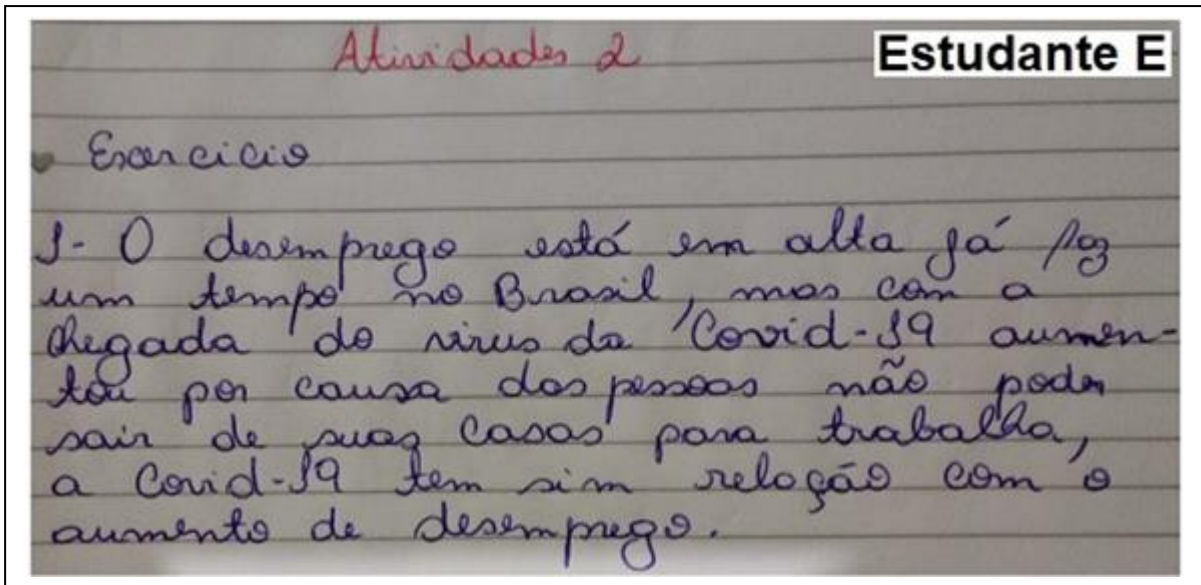 Atividades 2
Estudante E
Exercicio
1- O desemprego está em alta já faz
um tempo no Brasil, mas com a
chegada do virus da Covid-19 aumen-
tou por causa das pessoas não poder
sair de suas casas para trabalha,
a Covid-19 tem sim relação com o
aumento de desemprego.